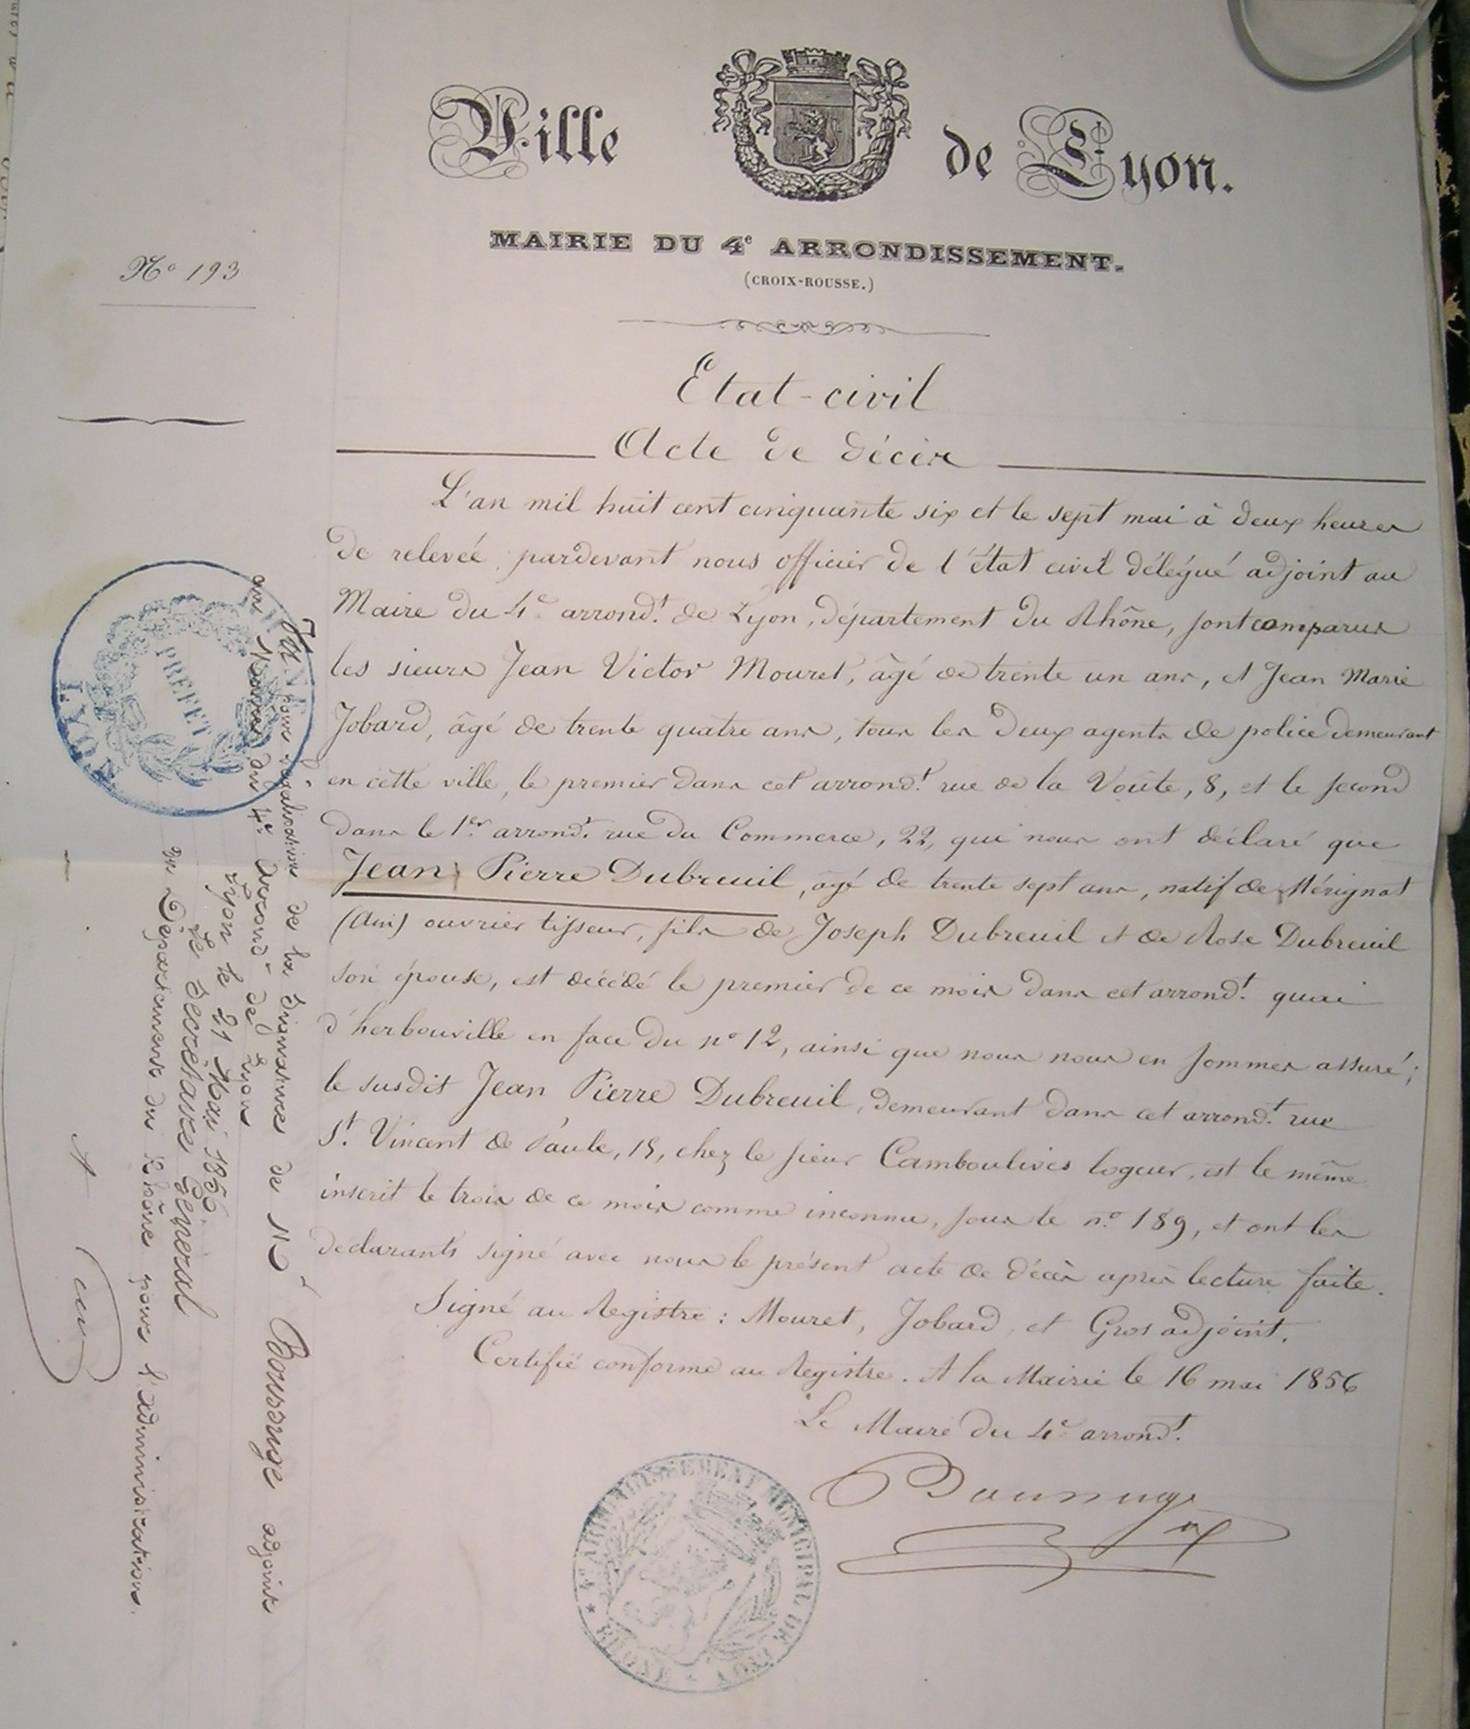 Ville de Lyon.
MAIRIE DU 4e ARRONDISSEMENT.
(CROIX-ROUSSE.)
No 193
Etat-civil
Acte de décès
L'an mil huit cent cinquante six et le sept mai à deux heures
de relevée pardevant nous officier de l'état civil délégué adjoint au
Maire du 4e arrondt. de Lyon, département du Rhône, sont comparus
les sieurs Jean Victor Mouret, âgé de trente un ans, et Jean Marie
Jobard, âgé de trente quatre ans, tous les deux agents de police demeurant
en cette ville, le premier dans cet arrondt. rue de la Voûte, 8, et le second
dans le 1er arrondt. rue du Commerce, 22, qui nous ont déclaré que
Jean Pierre Dubreuil, âgé de trente sept ans, natif de Mérignat
(Ain) ouvrier tisseur, fils de Joseph Dubreuil et de Rose Dubreuil
son épouse, est décédé le premier de ce mois dans cet arrondt. quai
d'herbouville en face du no 12, ainsi que nous nous en sommes assuré;
le susdit Jean Pierre Dubreuil, demeurant dans cet arrondt. rue
St. Vincent de Paule, 15, chez le sieur Camboulives logeur, est le même
inscrit le trois de ce mois comme inconnu, sous le no. 189, et ont les
déclarants signé avec nous le présent acte de décès après lecture faite.
Signé au Registre : Mouret, Jobard, et Gros adjoint.
Certifié conforme au Registre. A la Mairie le 16 mai 1856
Le Maire du 4e arrondt.
4e ARRONDISSEMENT MUNICIPAL DE LYON * RHONE *
Vu pour légalisation de la signature de Mr Boussuge adjoint
au Maire du 4e arrondt de Lyon
Lyon le 21 Mai 1856
Le Secrétaire Général
du Département du Rhône pour l'administration.
PREFET